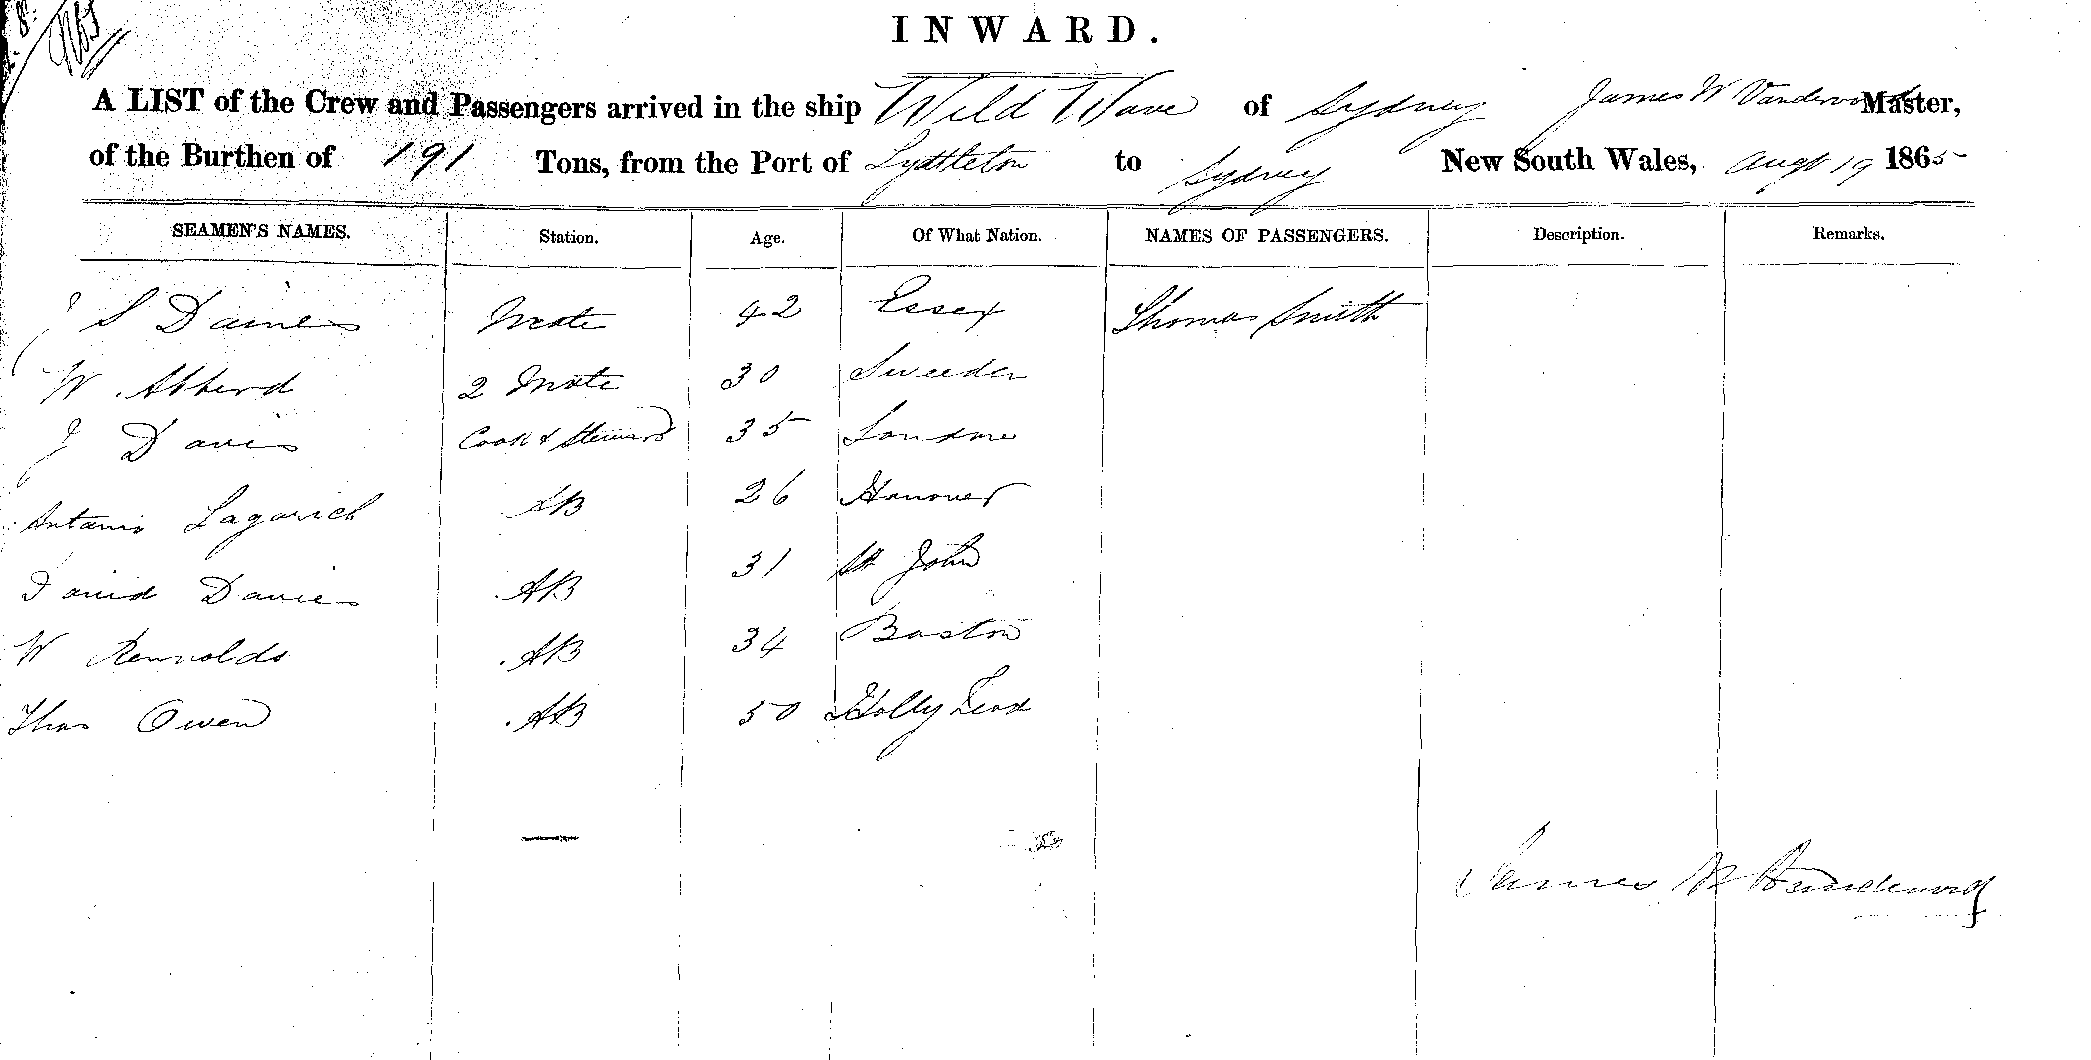 INWARD.
A LIST of the Crew and Passengers arrived in the ship Wild Wave of Sydney James W Vandervord Master,
of the Burthen of 191 Tons, from the Port of Lyttleton to Sydney New South Wales, Augt 19 1865
SEAMEN'S NAMES. Station. Age. Of What Nation. NAMES OF PASSENGERS. Description. Remarks.
J S Daines Mate 42 Essex Thomas Smith
W 2 Mate 30 Sweeden
J Davis Cook & Steward 35 London
Antanio 26 Hanover
David Davies AB 31 St John
W Rennolds AB 34 Boston
Thos Owen AB 50 Holly Head
James W Vandervord